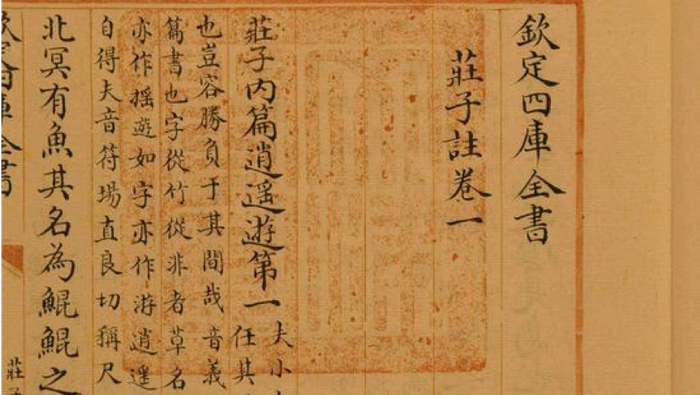 欽定四庫全書
莊子註卷一
莊子内篇逍遥遊第一
夫小
任其
也豈容勝負于其間哉 音義
篇書也字從竹從非者草名
亦作揺遊如字亦作游逍遥
自得夫音符場直良切稱尺
北冥有魚其名為鯤鯤之
全書
莊